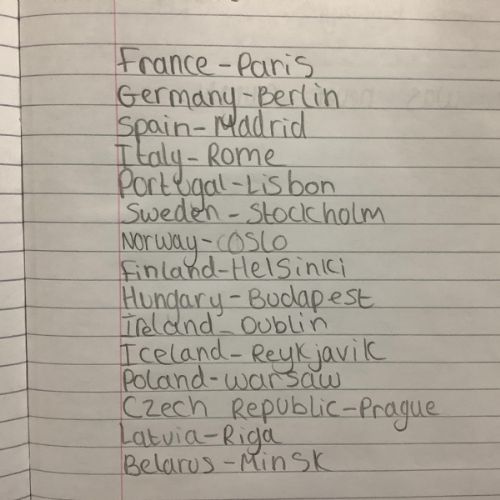 France - Paris
Germany - Berlin
Spain - Madrid
Italy - Rome
Portugal - Lisbon
Sweden - Stockholm
Norway - Oslo
Finland - Helsinki
Hungary - Budapest
Ireland - Dublin
Iceland - Reykjavik
Poland - Warsaw
Czech Republic - Prague
Latvia - Riga
Belarus - Minsk